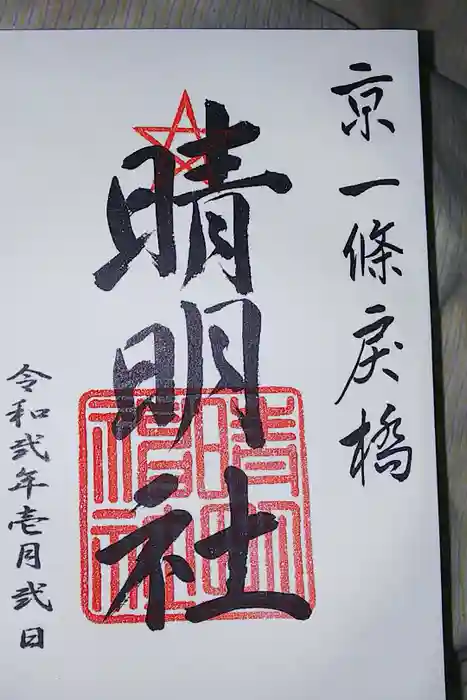 京一條戻橋
晴明社
令和弐年壱月弐日
晴明神社